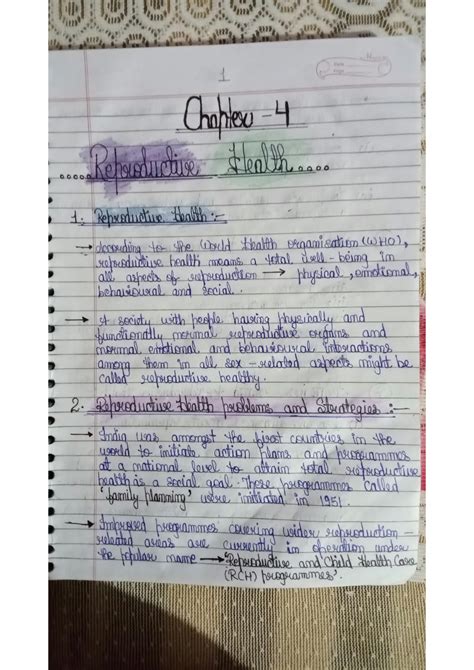 1
Chapter - 4
.....Reproductive Health....
1. Reproductive Health :-
→ According to the World Health organisation (WHO),
reproductive health means a total well-being in
all aspects of reproduction → physical, emotional,
behavioural and social.
→ A society with people having physically and
functionally normal reproductive organs and
normal emotional and behavioural interactions
among them in all sex-related aspects might be
called reproductive healthy.
2. Reproductive Health problems and Strategies :-
→ India was amongst the first countries in the
world to initiate action plans and programmes
at a national level to attain total reproductive
health as a social goal. These programmes called
'family planning' were initiated in 1951.
→ Improved programmes covering wider reproduction-
related areas are currently in operation under
the popular name → 'Reproductive and Child Health Care
(RCH) programmes'.